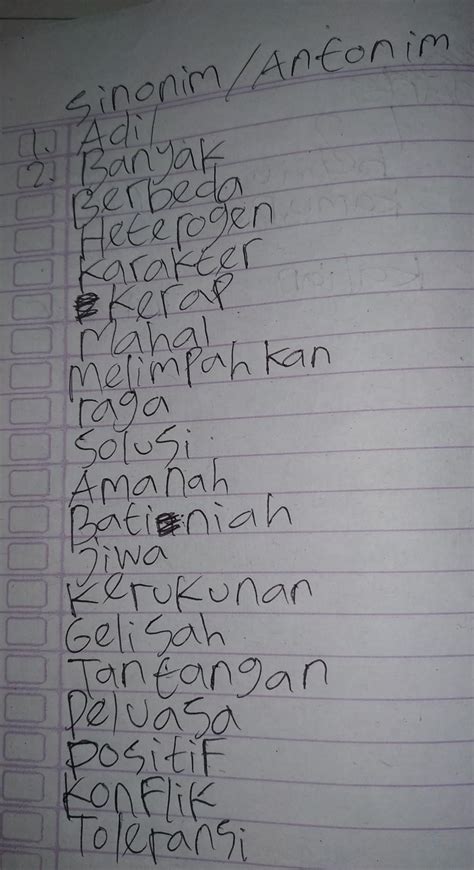 Sinonim/Antonim
1. Adil
2. Banyak
Berbeda
Heterogen
Karakter
Kerap
Mahal
Melimpahkan
raga
Solusi
Amanah
Batiniah
Jiwa
Kerukunan
Gelisah
Tantangan
Peluasa
Positif
Konflik
Toleransi